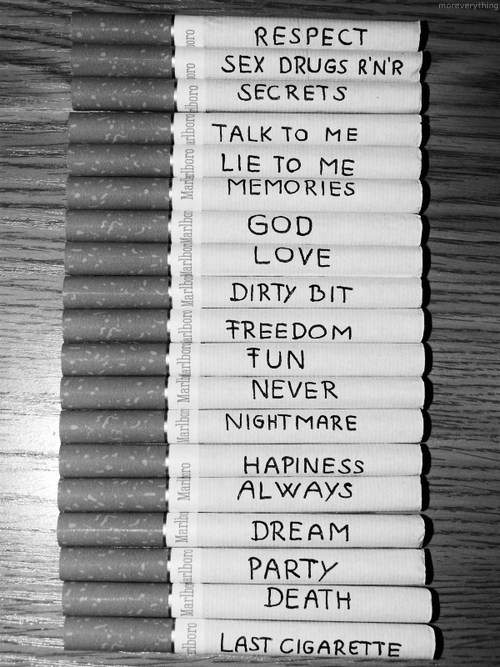 moreverything
RESPECT
SEX DRUGS R'N'R
SECRETS
TALK TO ME
LIE TO ME
MEMORIES
GOD
LOVE
DIRTY BIT
FREEDOM
FUN
NEVER
NIGHTMARE
HAPINESS
ALWAYS
DREAM
PARTY
DEATH
LAST CIGARETTE
Marlboro